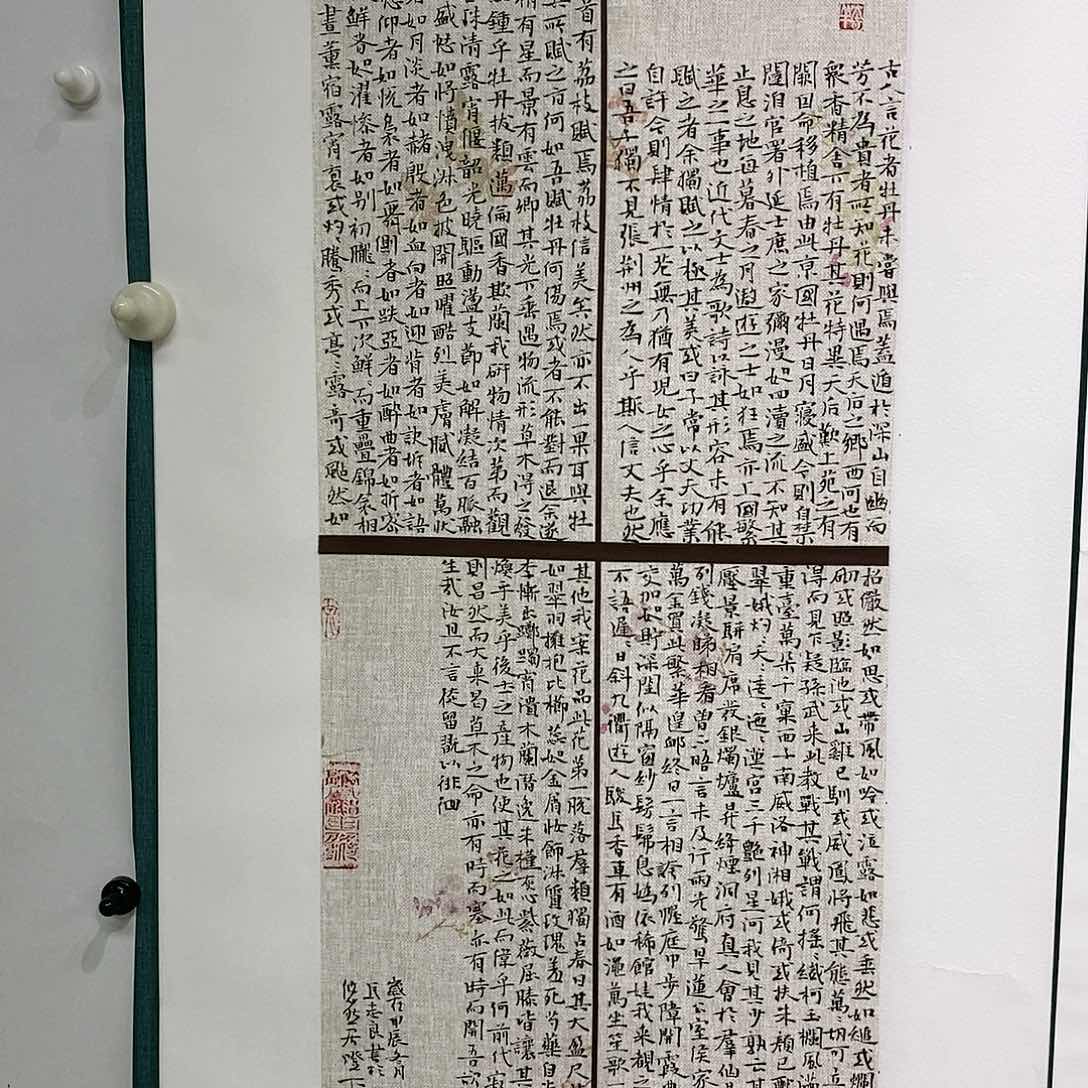 古人言花者牡丹未嘗與焉蓋遁於深山自幽而
芳不為貴者所知花則何遇焉天后之鄉西河也有
衆香精舍下有牡丹其花特異天后歎上苑之有
闕因命移植焉由此京國牡丹日月寖盛今則自禁
闥洎官署外延士庶之家彌漫如四瀆之流不知其
止息之地每暮春之月遨遊之士如狂焉亦上國繁
華之一事也近代文士為歌詩以詠其形容未有能
賦之者余獨賦之以極其美或曰子常以丈夫功業
自許今則肆情於一花無乃猶有兒女之心乎余應
之曰吾子獨不見張荊州之為人乎斯人信丈夫也然
首有荔枝賦焉荔枝信美矣然亦不出一果耳與牡
其所賦之旨何如吾賦牡丹何傷焉或者不能對而退余遂
有星而景有雲而卿其光下垂遇物流形草木得之發
鍾乎牡丹拔類邁倫國香欺蘭我研物情次第而觀
珠清露宵偃韶光曉驅動蕩支節如解凝結百脈融
盛怒如將憤洩淋色披開照曜酷烈美膚膩體萬狀
如月淡者如赭殷者如血向者如迎背者如訣坼者如語
仰者如悅裊者如舞側者如跌亞者如醉曲者如折密
鮮者如濯慘者如別初朧朧而上下次鱗鱗而重疊錦衾相
晝薰宿露宵裛或灼灼騰秀或亭亭露奇或颭然如
招儼然如思或帶風如吟或泣露如悲或垂然如縋或爛
砌或照影臨池或山雞已馴或威鳳將飛其態萬可立
得而見下疑孫武來此教戰其戰謂何搖搖纖柯玉欄風滿
重臺萬朵千窠西子南威洛神湘娥或倚或扶朱顏已酡
翠娥灼灼夭夭逶逶迤迤漢宮三千艷列星河我見其少孰云其
壓景駢肩席發銀燭爐昇絳煙洞府真人會於群仙
列錢凝睇相看曾不晤言未及行雨先驚旱蓮公室侯家
萬金買此繁華遑恤終日一言相誇列幄庭中步障開霞曲
交加如貯深閨似隔窗紗髣髴息媯依稀館娃我來觀之
不語遲遲日斜九衢遊人駿馬香車有酒如澠萬坐笙歌
其他我案花品此花第一脫落群類獨占春日其大盈尺
如翠羽擁抱比櫛蕊如金屑妝飾淋質玫瑰羞死芍藥自
李慚出躑躅宵潰木蘭潛逸朱槿灰心紫薇屈膝皆讓其
煥乎美乎後土之產物也使其花之如此而偉乎何前代寂
則昌然而大來曷草木之命亦有時而塞亦有時而開吾欲
生哉汝且不言徒留翫以徘徊
歲在甲辰冬月
志良書於
悠然居燈下